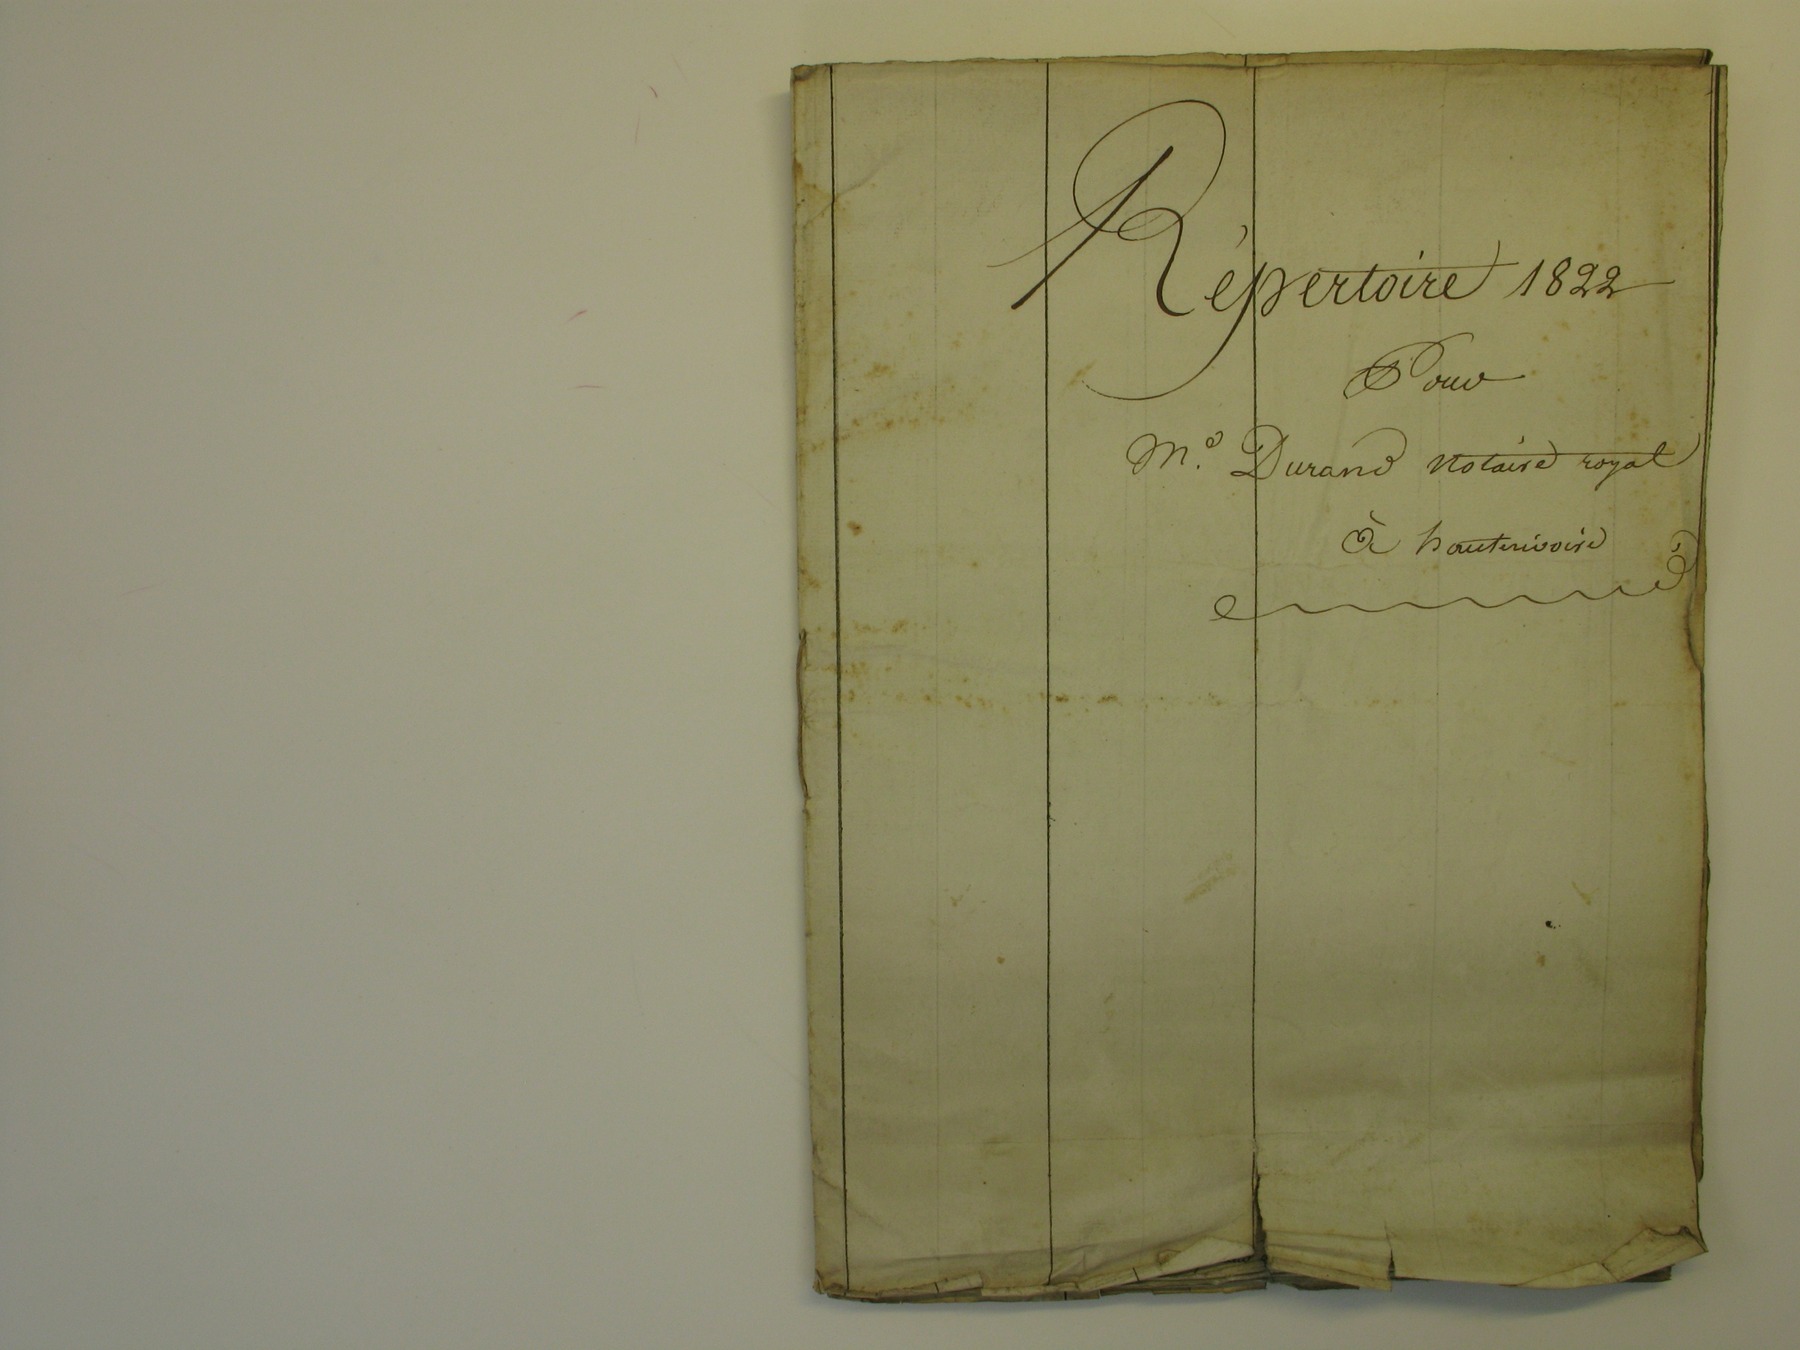 Répertoire 1822
Pour
M.e Durand notaire royal
à hauterivoire